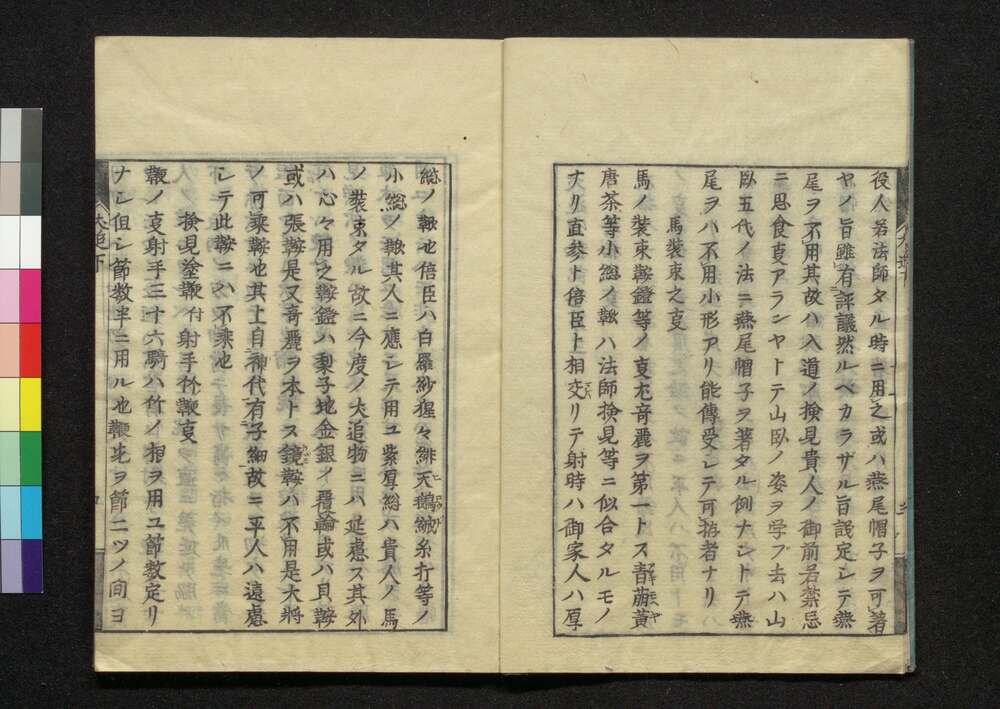 役人若法師タル時ニ用之或ハ燕尾帽子ヲ可著
ヤノ旨雖有評議然ルベカラザル旨議定シテ燕
尾ヲ不用其故ハ入道ノ検見貴人ノ御前若禁忌
ニ思食叓アランヤトテ山臥ノ姿ヲ学ブ去ハ山
臥五代ノ法ニ燕尾帽子ヲ著タル例ナシトテ燕
尾ヲハ不用小形アリ能傳受シテ可捨者ナリ
馬装束之叓
馬ノ装束鞍鐙等ノ叓尤竒麗ヲ第一トス萠黄
唐茶等小総ノ鞦ハ法師検見等ニ似合タルモノ
ナリ直参ト倍臣ト相交リテ射時ハ御家人ハ厚
総ノ鞦也倍臣ハ白羅紗猩々緋天鵝絨糸打等ノ
小総ノ鞦其人ニ應シテ用ユ紫厚総ハ貴人ノ馬
ノ装束タル故ニ今度ノ犬追物ニハ延慮ス其外
ハ心々用之鞍鐙ハ梨子地金銀イ覆輪或ハ貝鞍
或ハ張鞍是又竒麗ヲ本トス鏡鞍ハ不用是大将
ノ可乗鞍也其上自神代有子細故ニ平人ハ遠慮
シテ此鞍ニハ不乗也
検見塗鞭付射手竹鞭叓
鞭ノ叓射手三十六騎ハ竹ノ根ヲ用ユ節数定リ
ナシ但シ節数半ニ用ル也鞭先ヲ節二ツノ間ヨ
犬追下